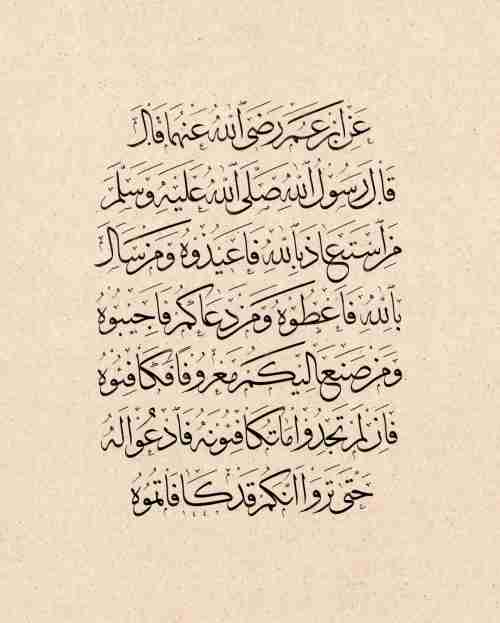 عَنِ ابْنِ عُمَرَ رَضِيَ اللهُ عَنْهُمَا قَالَ
قَالَ رَسُولُ اللهِ صَلَّى اللهُ عَلَيْهِ وَسَلَّمَ
مَنِ اسْتَعَاذَ بِاللهِ فَأَعِيذُوهُ وَمَنْ سَأَلَ
بِاللهِ فَأَعْطُوهُ وَمَنْ دَعَاكُمْ فَأَجِيبُوهُ
وَمَنْ صَنَعَ إِلَيْكُمْ مَعْرُوفًا فَكَافِئُوهُ
فَإِنْ لَمْ تَجِدُوا مَا تُكَافِئُونَهُ فَادْعُوا لَهُ
حَتَّى تَرَوْا أَنَّكُمْ قَدْ كَافَأْتُمُوهُ